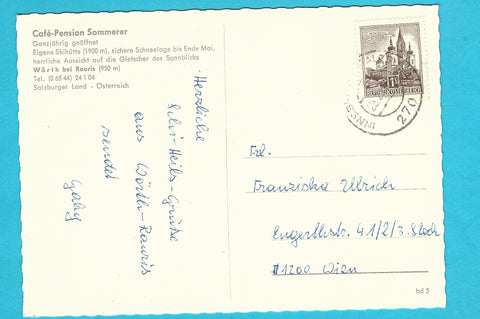 Café-Pension Sommerer
Ganzjährig geöffnet
Eigene Skihütte (1900 m), sichere Schneelage bis Ende Mai,
herrliche Aussicht auf die Gletscher des Sonnblicks
Wörth bei Rauris (950 m)
Tel. (0 65 44) 24 1 04
Salzburger Land - Österreich
Herzliche
Schi-Heils-Grüße
aus Wörth-Rauris
sendet
Gaby
REPUBLIK ÖSTERREICH
270
Frl.
Franziska Ullrich
Engerthstr. 41/2/3. Stock
1200 Wien
bd 5